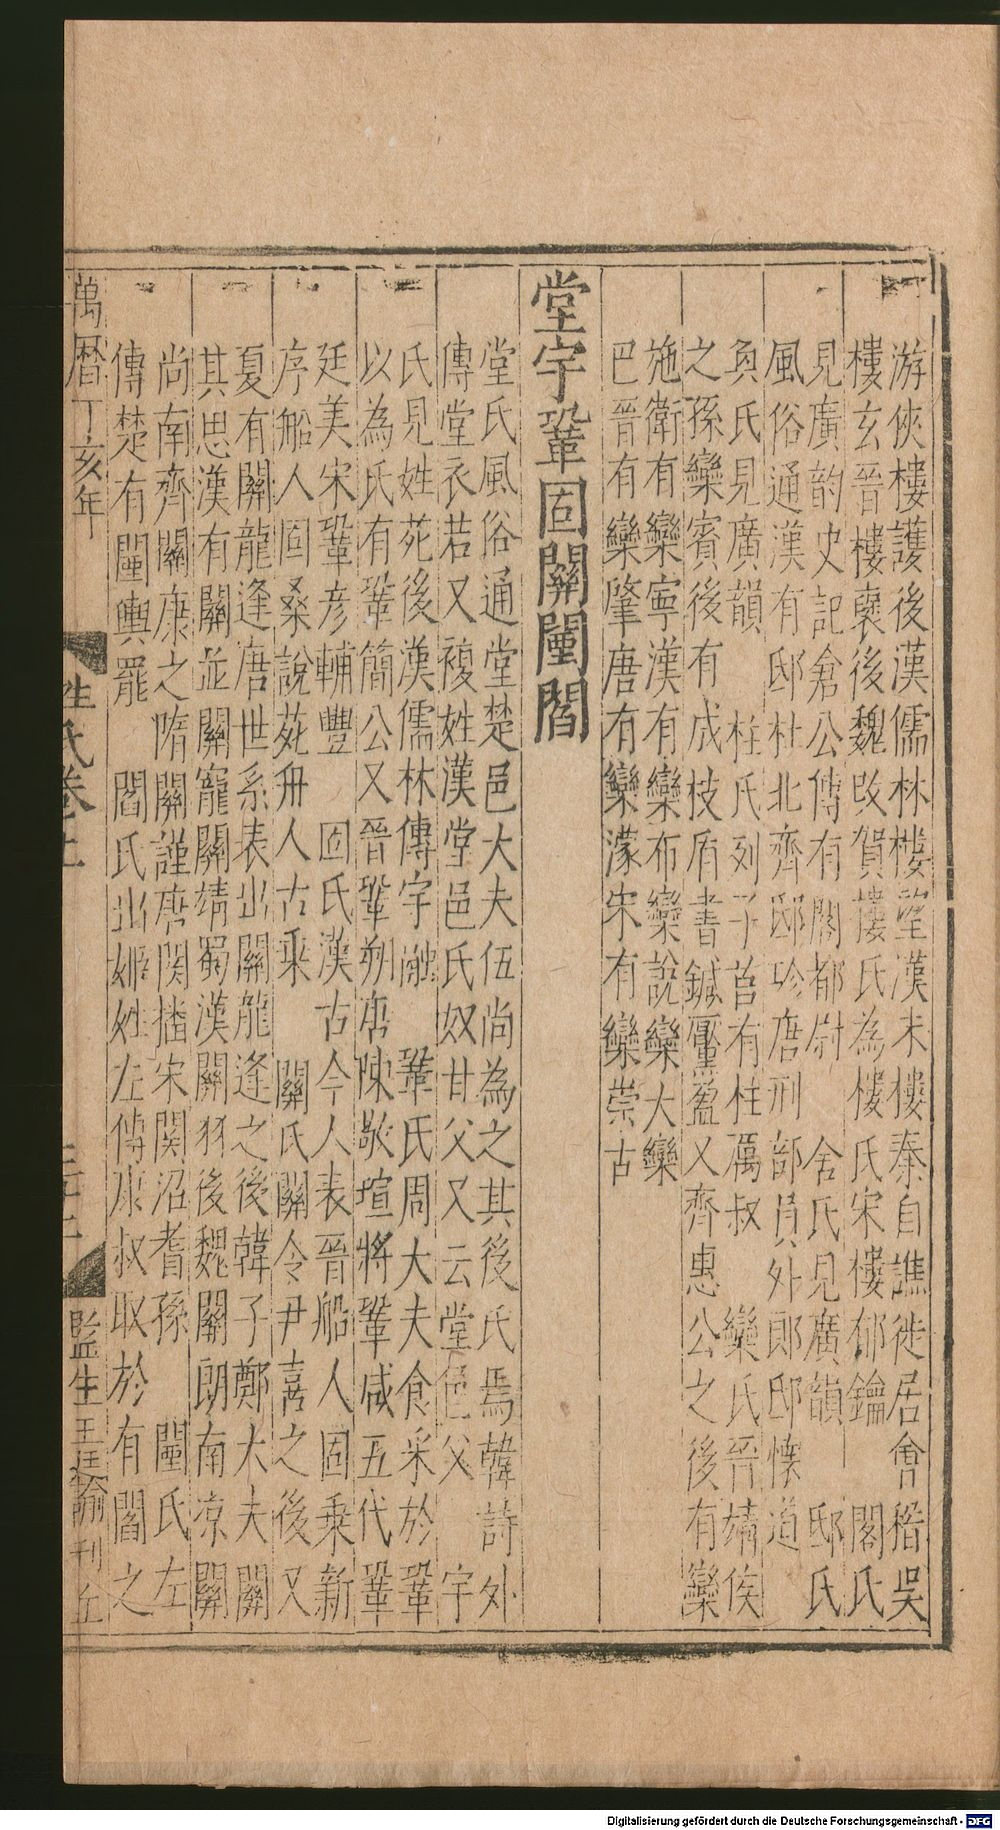 游俠樓護後漢儒林樓望漢末樓秦自譙徙居會稽吳
樓玄晉樓裒後魏改賀樓氏為樓氏宋樓郁鑰　閣氏
見廣韵史記倉公傳有閣都尉　舍氏見廣韻　邸氏
風俗通漢有邸杜北齊邸珍唐刑部員外郎邸懷道
奐氏見廣韻　柱氏列子莒有柱厲叔　欒氏晉靖侯
之孫欒賓後有成枝盾書鍼黶盈又齊惠公之後有欒
施衛有欒寧漢有欒布欒說欒大欒
巴晉有欒肇唐有欒濛宋有欒崇古
堂宇鞏固關闉閻
堂氏風俗通堂楚邑大夫伍尚為之其後氏焉韓詩外
傳堂衣若又複姓漢堂邑氏奴甘父又云堂邑父　宇
氏見姓苑後漢儒林傳宇融　鞏氏周大夫食采於鞏
以為氏有鞏簡公又晉鞏朔唐陳敬瑄將鞏咸五代鞏
廷美宋鞏彥輔豐　固氏漢古今人表晉船人固乘新
序船人固桑說苑舟人古乘　關氏關令尹喜之後又
夏有關龍逢唐世系表出關龍逢之後韓子鄭大夫關
其思漢有關並關寵關靖蜀漢關羽後魏關朗南凉關
尚南齊關康之隋關謹唐関播宋関沼耆孫　闉氏左
傳楚有闉輿罷　閻氏出姬姓左傳康叔取於有閻之
萬曆丁亥年　姓氏卷上　監生王 刊丘
Digitalisierung gefördert durch die Deutsche Forschungsgemeinschaft - DFG